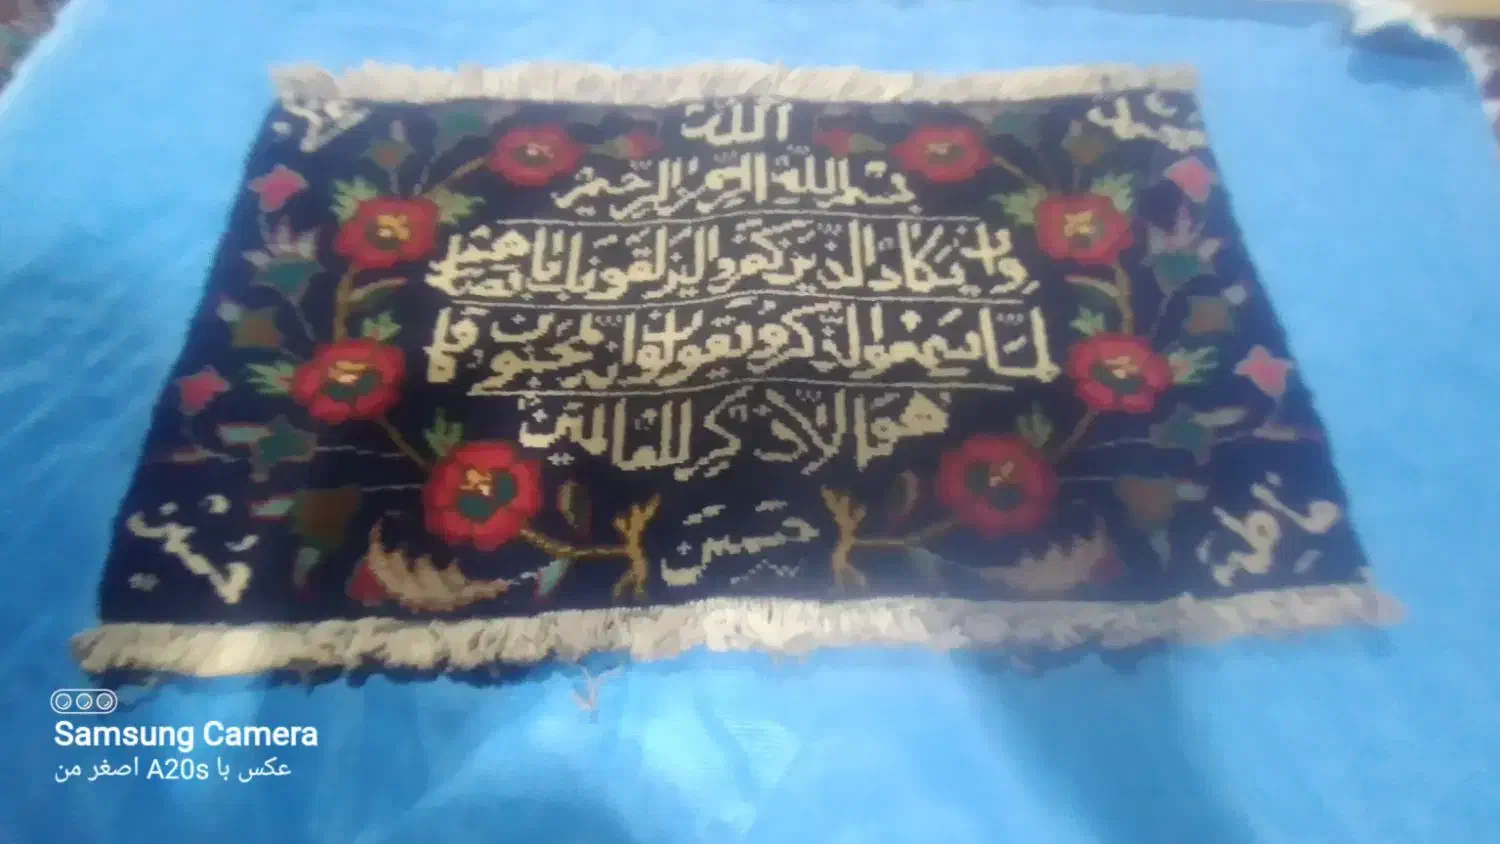 الله
محمد
علی
بسم الله الرحمن الرحیم
وان یکاد الذین کفروا لیزلقونک بابصارهم
لما سمعوا الذکر و یقولون انه لمجنون و ما
هو الا ذکر للعالمین
فاطمة
حسن
حسین
Samsung Camera
عکس با A20s اصغر من